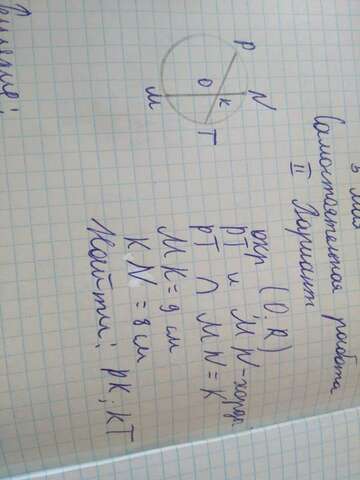 5 мая
Самостоятельная работа
II Вариант
P
O
K
N
M
T
окр (O.R)
PT и MN-хорды
PT ∩ MN = K
MK = 9 см
KN = 8 см
Найти: PK; KT